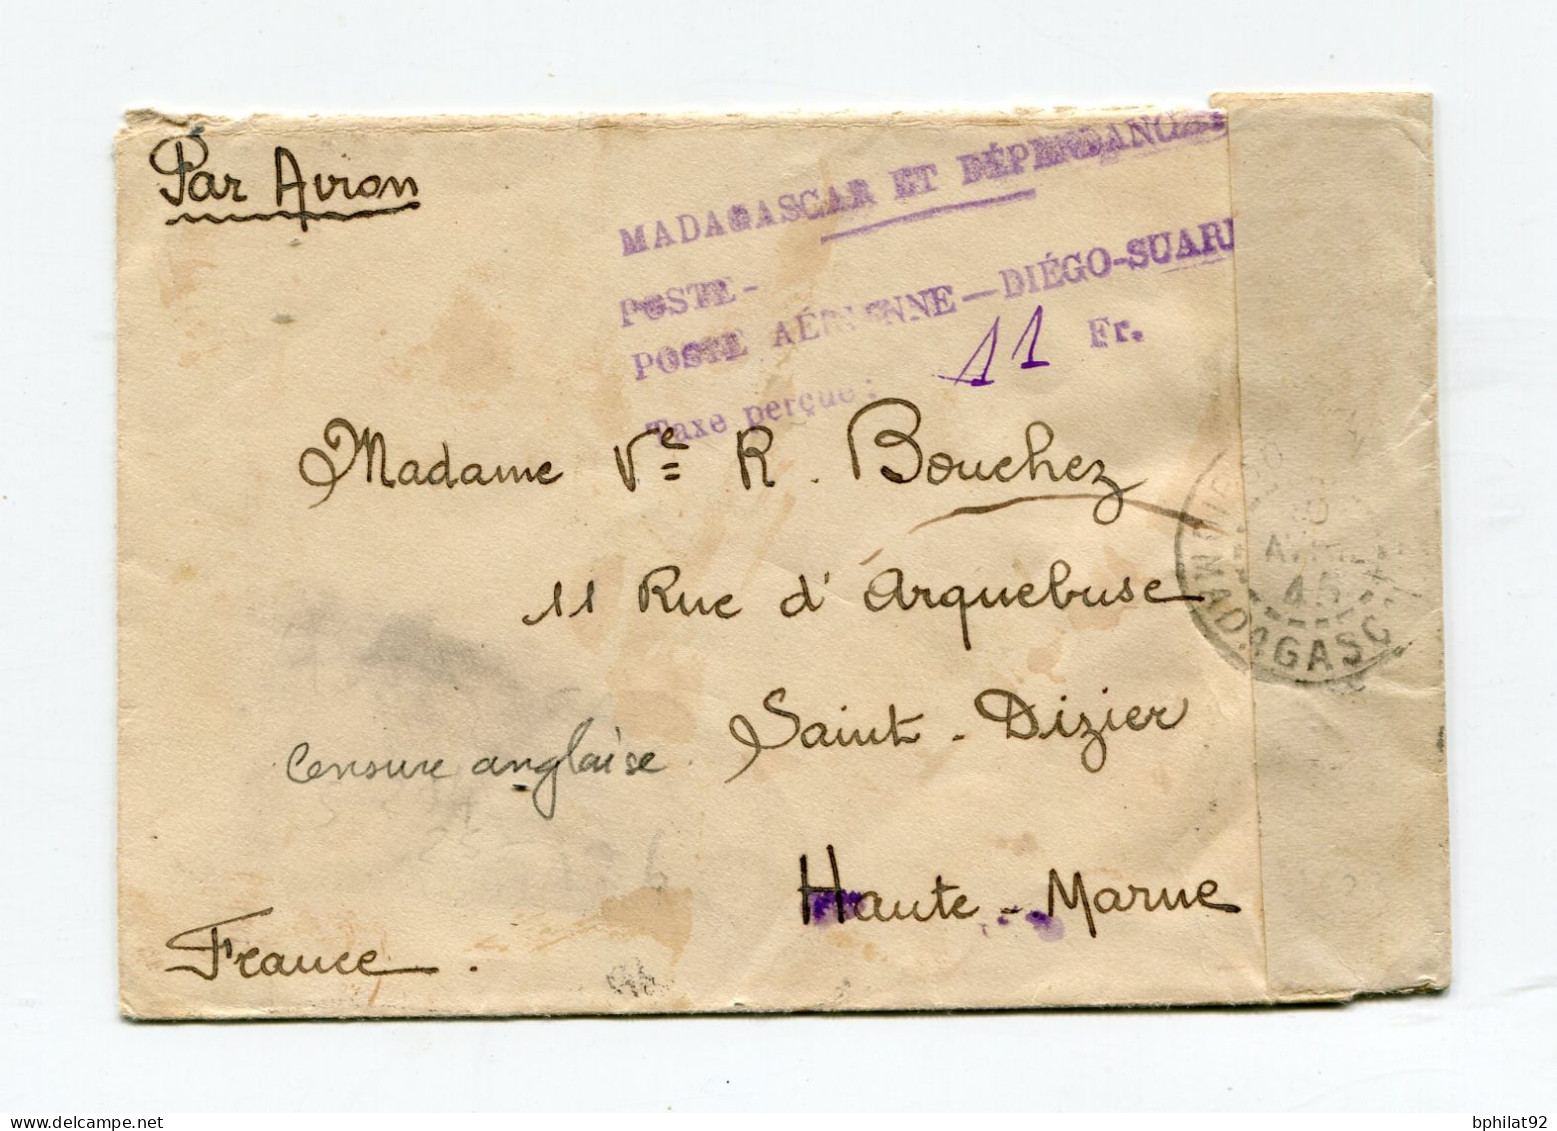 Par Avion
MADAGASCAR ET DÉPENDANC
POSTE-
POSTE AÉRIENNE—DIÉGO-SUAR
Taxe perçue : 11 Fr.
Madame Vᵉ R. Bouchez
11 Rue d'Arquebuse
Saint-Dizier
Censure anglaise
Haute-Marne
France.
AVRIL
45
MADAGASC
bphilat92